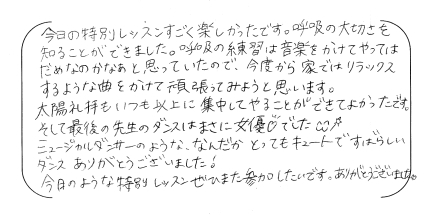 今日の特別レッスンすごく楽しかったです。呼吸の大切さを
知ることができました。呼吸の練習は音楽をかけてやっては
だめなのかなあと思っていたので、今度から家ではリラックス
するような曲をかけて頑張ってみようと思います。
太陽礼拝もいつも以上に集中してやることができてよかったです。
そして最後の先生のダンスはまさに女優♡でした
ミュージカルダンサーのような、なんだかとってもキュートですばらしい
ダンスありがとうございました!
今日のような特別レッスンぜひまた参加したいです。ありがとうございました。